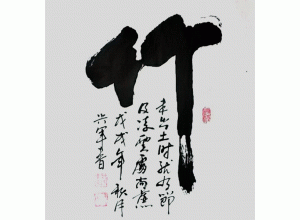 竹
未出土时就有節
及凌雲處尚虛
戊戌年秋月